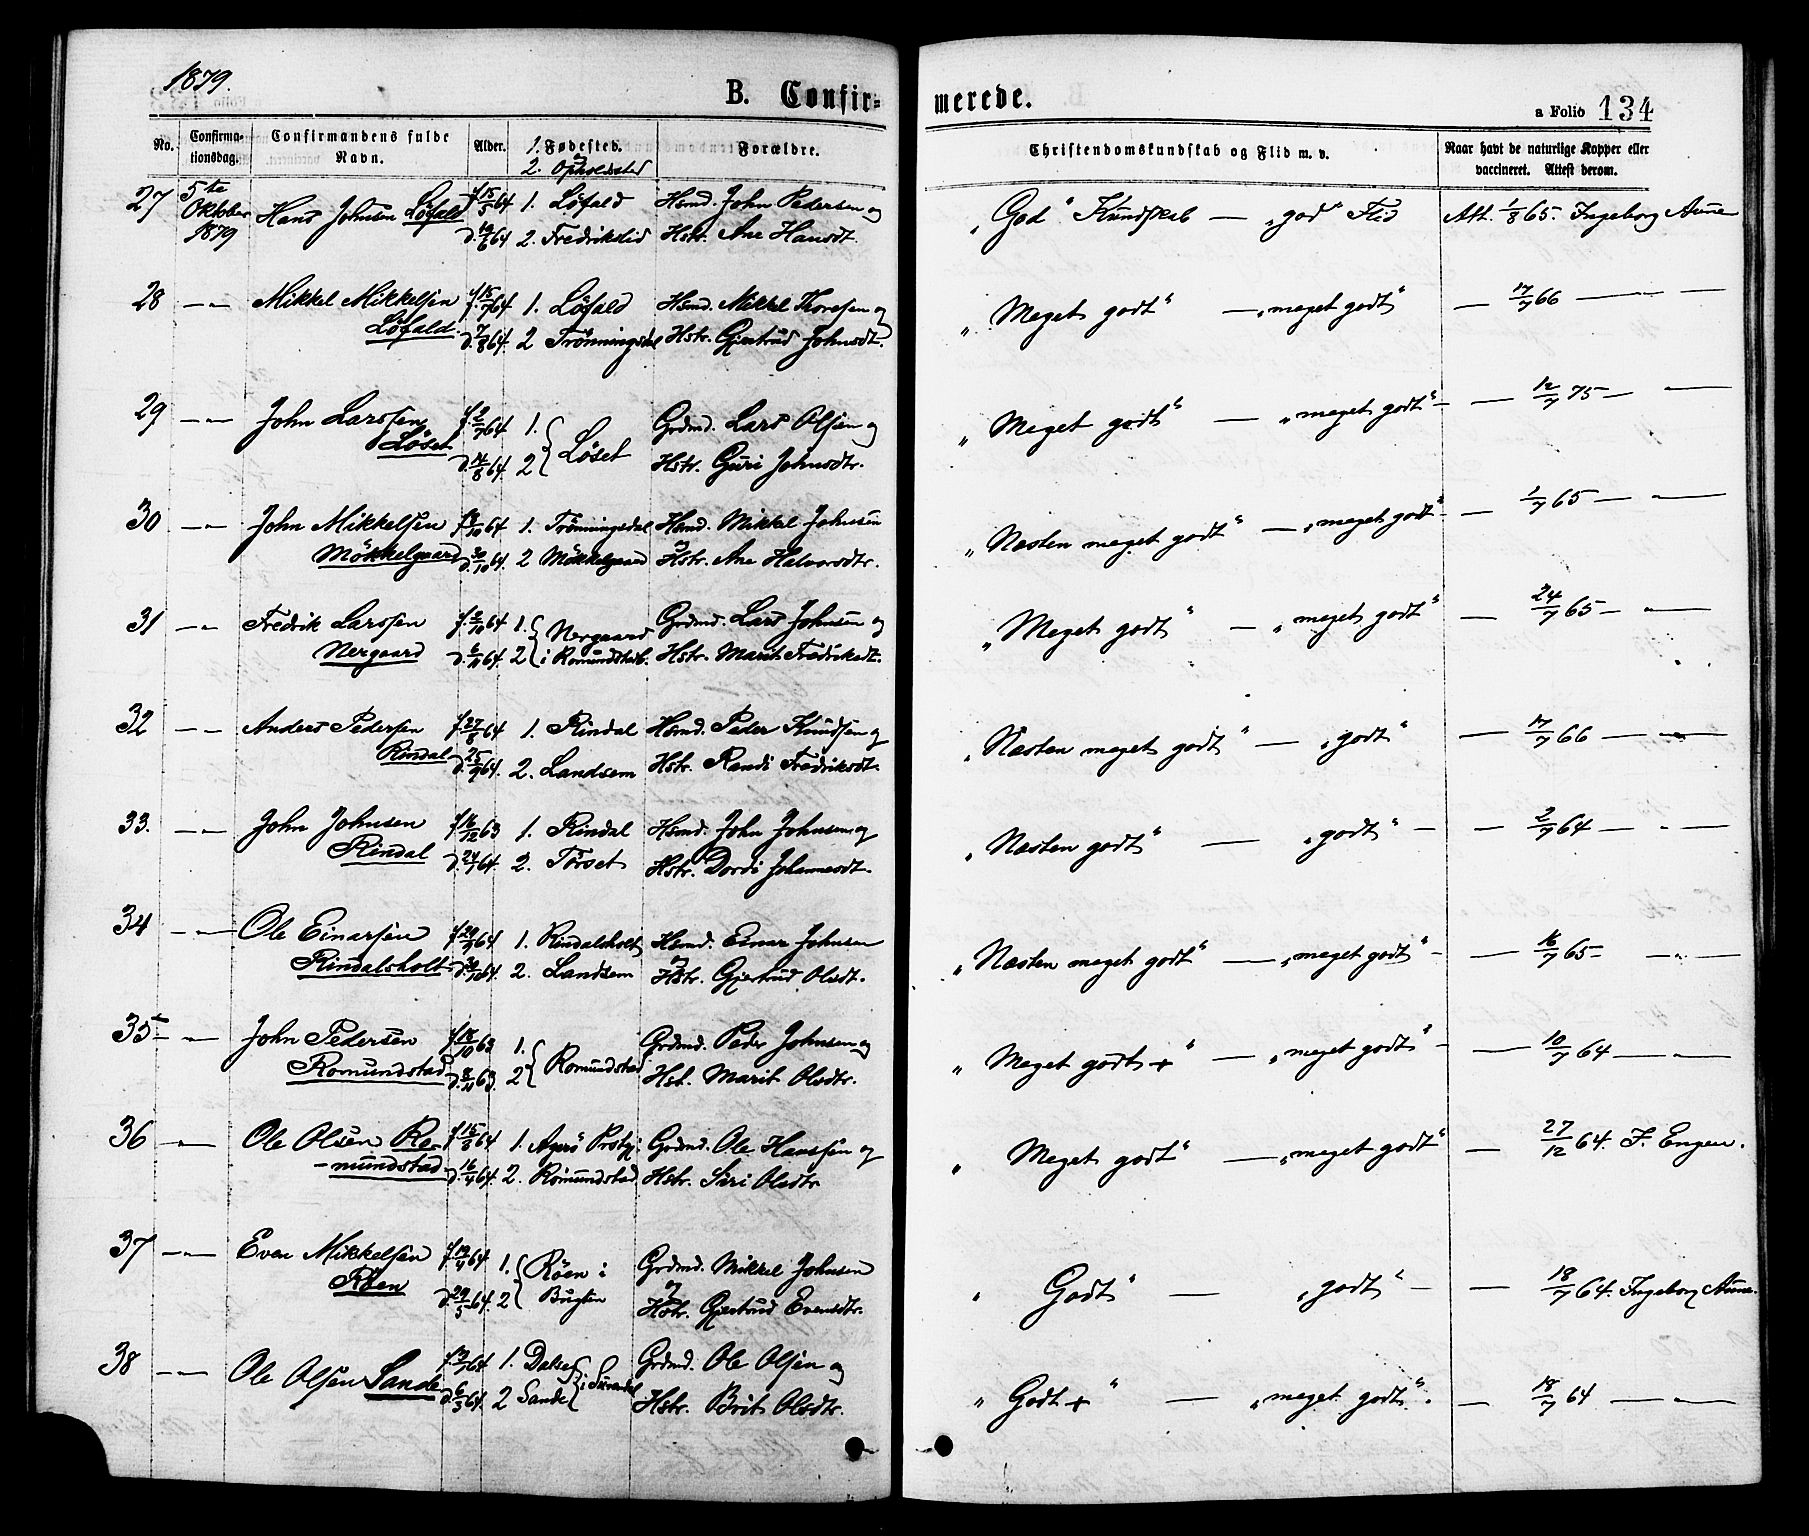 1879.
B. Confirmerede.
a Folio 134
No.
Confirmationsdag.
Confirmandens fulde Navn.
Alder.
1. Fødested. og
2. Opholdssted
Forældre.
Christendomskundskab og Flid m. v.
Naar havt de naturlige Kopper eller vaccineret. Attest derom.
27 5te Oktober 1879 Hans Johnsen Löfald f. 15/5 64 1. Löfald Hsmd. John Pedersen og „God" Kundskab — „god" Flid Att. 1/8 65. Ingeborg Aune
d. 19/6 64 2. Fredrikslid Hstr. Ane Hansdt.
28 — " — Mikkel Mikkelsen f. 15/7 64 1. Löfald Hsmd. Mikkel Thoresen og „Meget godt" — „meget godt" — 17/7 66 — " —
Löfald. d. 7/8 64. 2 Trönningsdal Hstr. Gjertrud Johnsdt.
29 — " — John Larssen f. 2/7 64 1. Grdmd. Lars Olsen og „Meget godt" — „meget godt" — 12/7 75 — —
Löset d. 14/8 64. 2 Löset Hstr. Guri Johnsdtr.
30 — " — John Mikkelsen 64 1. Trönningsdal Hsmd. Mikkel Johnsen „Næsten meget godt" — „meget godt" — 1/7 65 — —
Mökkelgaard d. 30/10 64. 2 Mökkelgaard og Hstr. Ane Halvorsdtr.
31 — " — Fredrik Larssen 64 1. Nergaard Grdmd. Lars Johnsen og „Meget godt" — „meget godt" — 24/7 65 — " —
Nergaard d. 6/11 64. 2 i Romundstadb. Hstr. Marit Fredriksdt.
32 — " — Anders Pedersen f. 27/8 64 1. Rindal Hsmd. Peder Knudsen og „Næsten meget godt" — „godt" — 17/7 66 — " —
Rindal d. 25/9 64. 2. Landsem Hstr. Randi Fredriksdt.
33. — " — John Johnsen f. 16/12 63 1. Rindal Hsmd. John Johnsen og „Næsten godt" — „godt" — 2/7 64 — " —
Rindal d. 24/1 64. 2. Törset Hstr. Dordi Johannesdt.
34 — " — Ole Einarsen f. 29/9 64 1. Rindalsholt Hsmd. Einar Johnsen „Næsten meget godt" — „meget godt" — 16/7 65 — " —
Rindalsholt d. 30/10 64. 2. Landsem og Hstr. Gjertrud Olsdt.
35 — " — John Pedersen f. 18/10 63 1. Grdmd. Peder Johnsen og „Meget godt +" — „meget godt" — 10/7 64 — " —
Romundstad d. 8/11 63. 2 Romundstad Hst. Marit Olsdtr.
36 — " — Ole Olsen Ro- f. 15/3 64 1. Agerö Prstgj. Grdmd. Ole Hanssen og „Meget godt" — „meget godt" — 27/12 64. F. Engen.
mundstad d. 16/4 64. 2. Romundstad Hstr. Siri Olsdtr
37 — " — Even Mikkelsen f. 19/4 64 1. Röen i Grdmd. Mikkel Johnsen „Godt" — „godt" — 18/7 64. Ingeborg Aune.
Röen d. 29/5 64. 2 Bugten og Hstr. Gjertrud Evensdtr.
38 — " — Ole Olsen Sande 64 1. Dalseg Grdmd. Ole Olsen og „Godt +" — „meget godt". — 18/7 64 — —
d. 6/3 64. 2 Sande i Surendal Hstr. Brit Olsdtr.